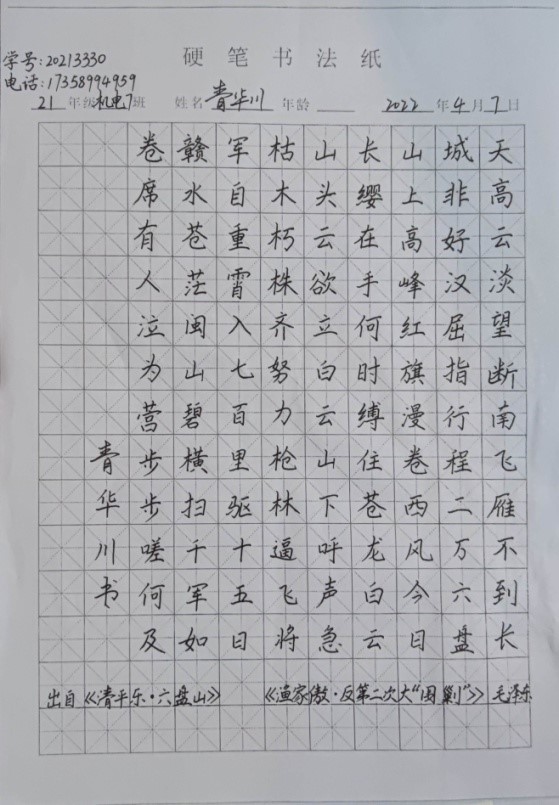 硬笔书法纸
学号:20213330
电话:17358994959
21年级机电7班 姓名青华川 年龄 2022年4月7日
天高云淡望断南飞雁不到长
城非好汉屈指行程二万六盘
山上高峰红旗漫卷西风今日
长缨在手何时缚住苍龙白云
山头云欲立白云山下呼声急
枯木朽株齐努力枪林逼飞将
军自重霄入七百里驱十五日
赣水苍茫闽山碧横扫千军如
卷席有人泣为营步步嗟何及
青华川书
出自《清平乐·六盘山》 《渔家傲·反第二次大“围剿”》毛泽东